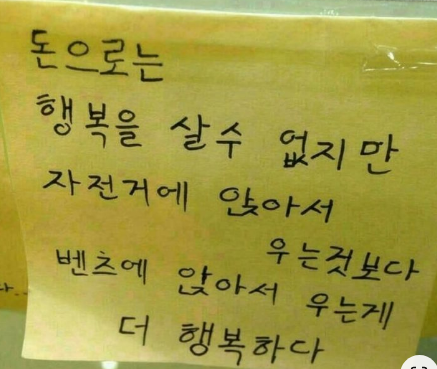 돈으로는
행복을 살수 없지만
자전거에 앉아서
우는것보다
벤츠에 앉아서 우는게
더 행복하다